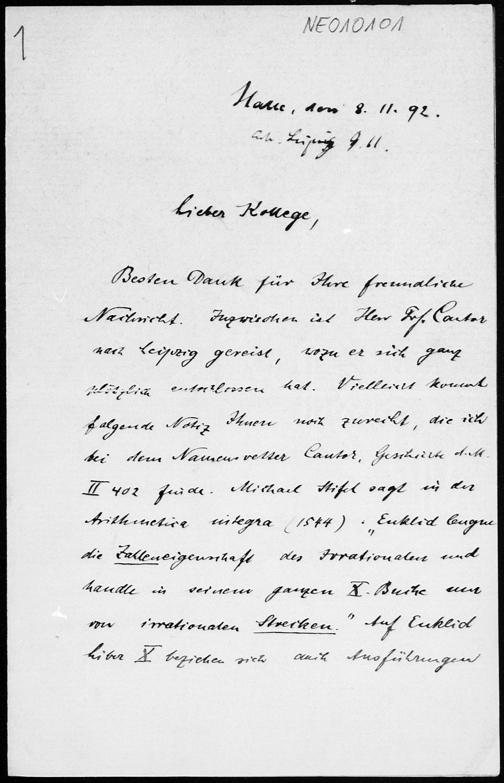 1
NE010101
Halle, den 8. 11. 92.
Leipzig 9.11.
Lieber Kollege,
Besten Dank für Ihre freundliche
Nachricht. Inzwischen ist Herr Prf. Cantor
nach Leipzig gereist, wozu er sich ganz
plötzlich entschlossen hat. Vielleicht kommt
folgende Notiz Ihnen noch zurecht, die ich
bei dem Namensvetter Cantor, Geschichte d. M.
II 402 finde. Michael Stifel sagt in der
Arithmetica integra (1544): "Euklid leugne
die Zahleneigenschaft des Irrationalen und
handle in seinem ganzen X. Buche nur
von irrationalen Strecken." Auf Euklid
liber X beziehen sich auch Ausführungen